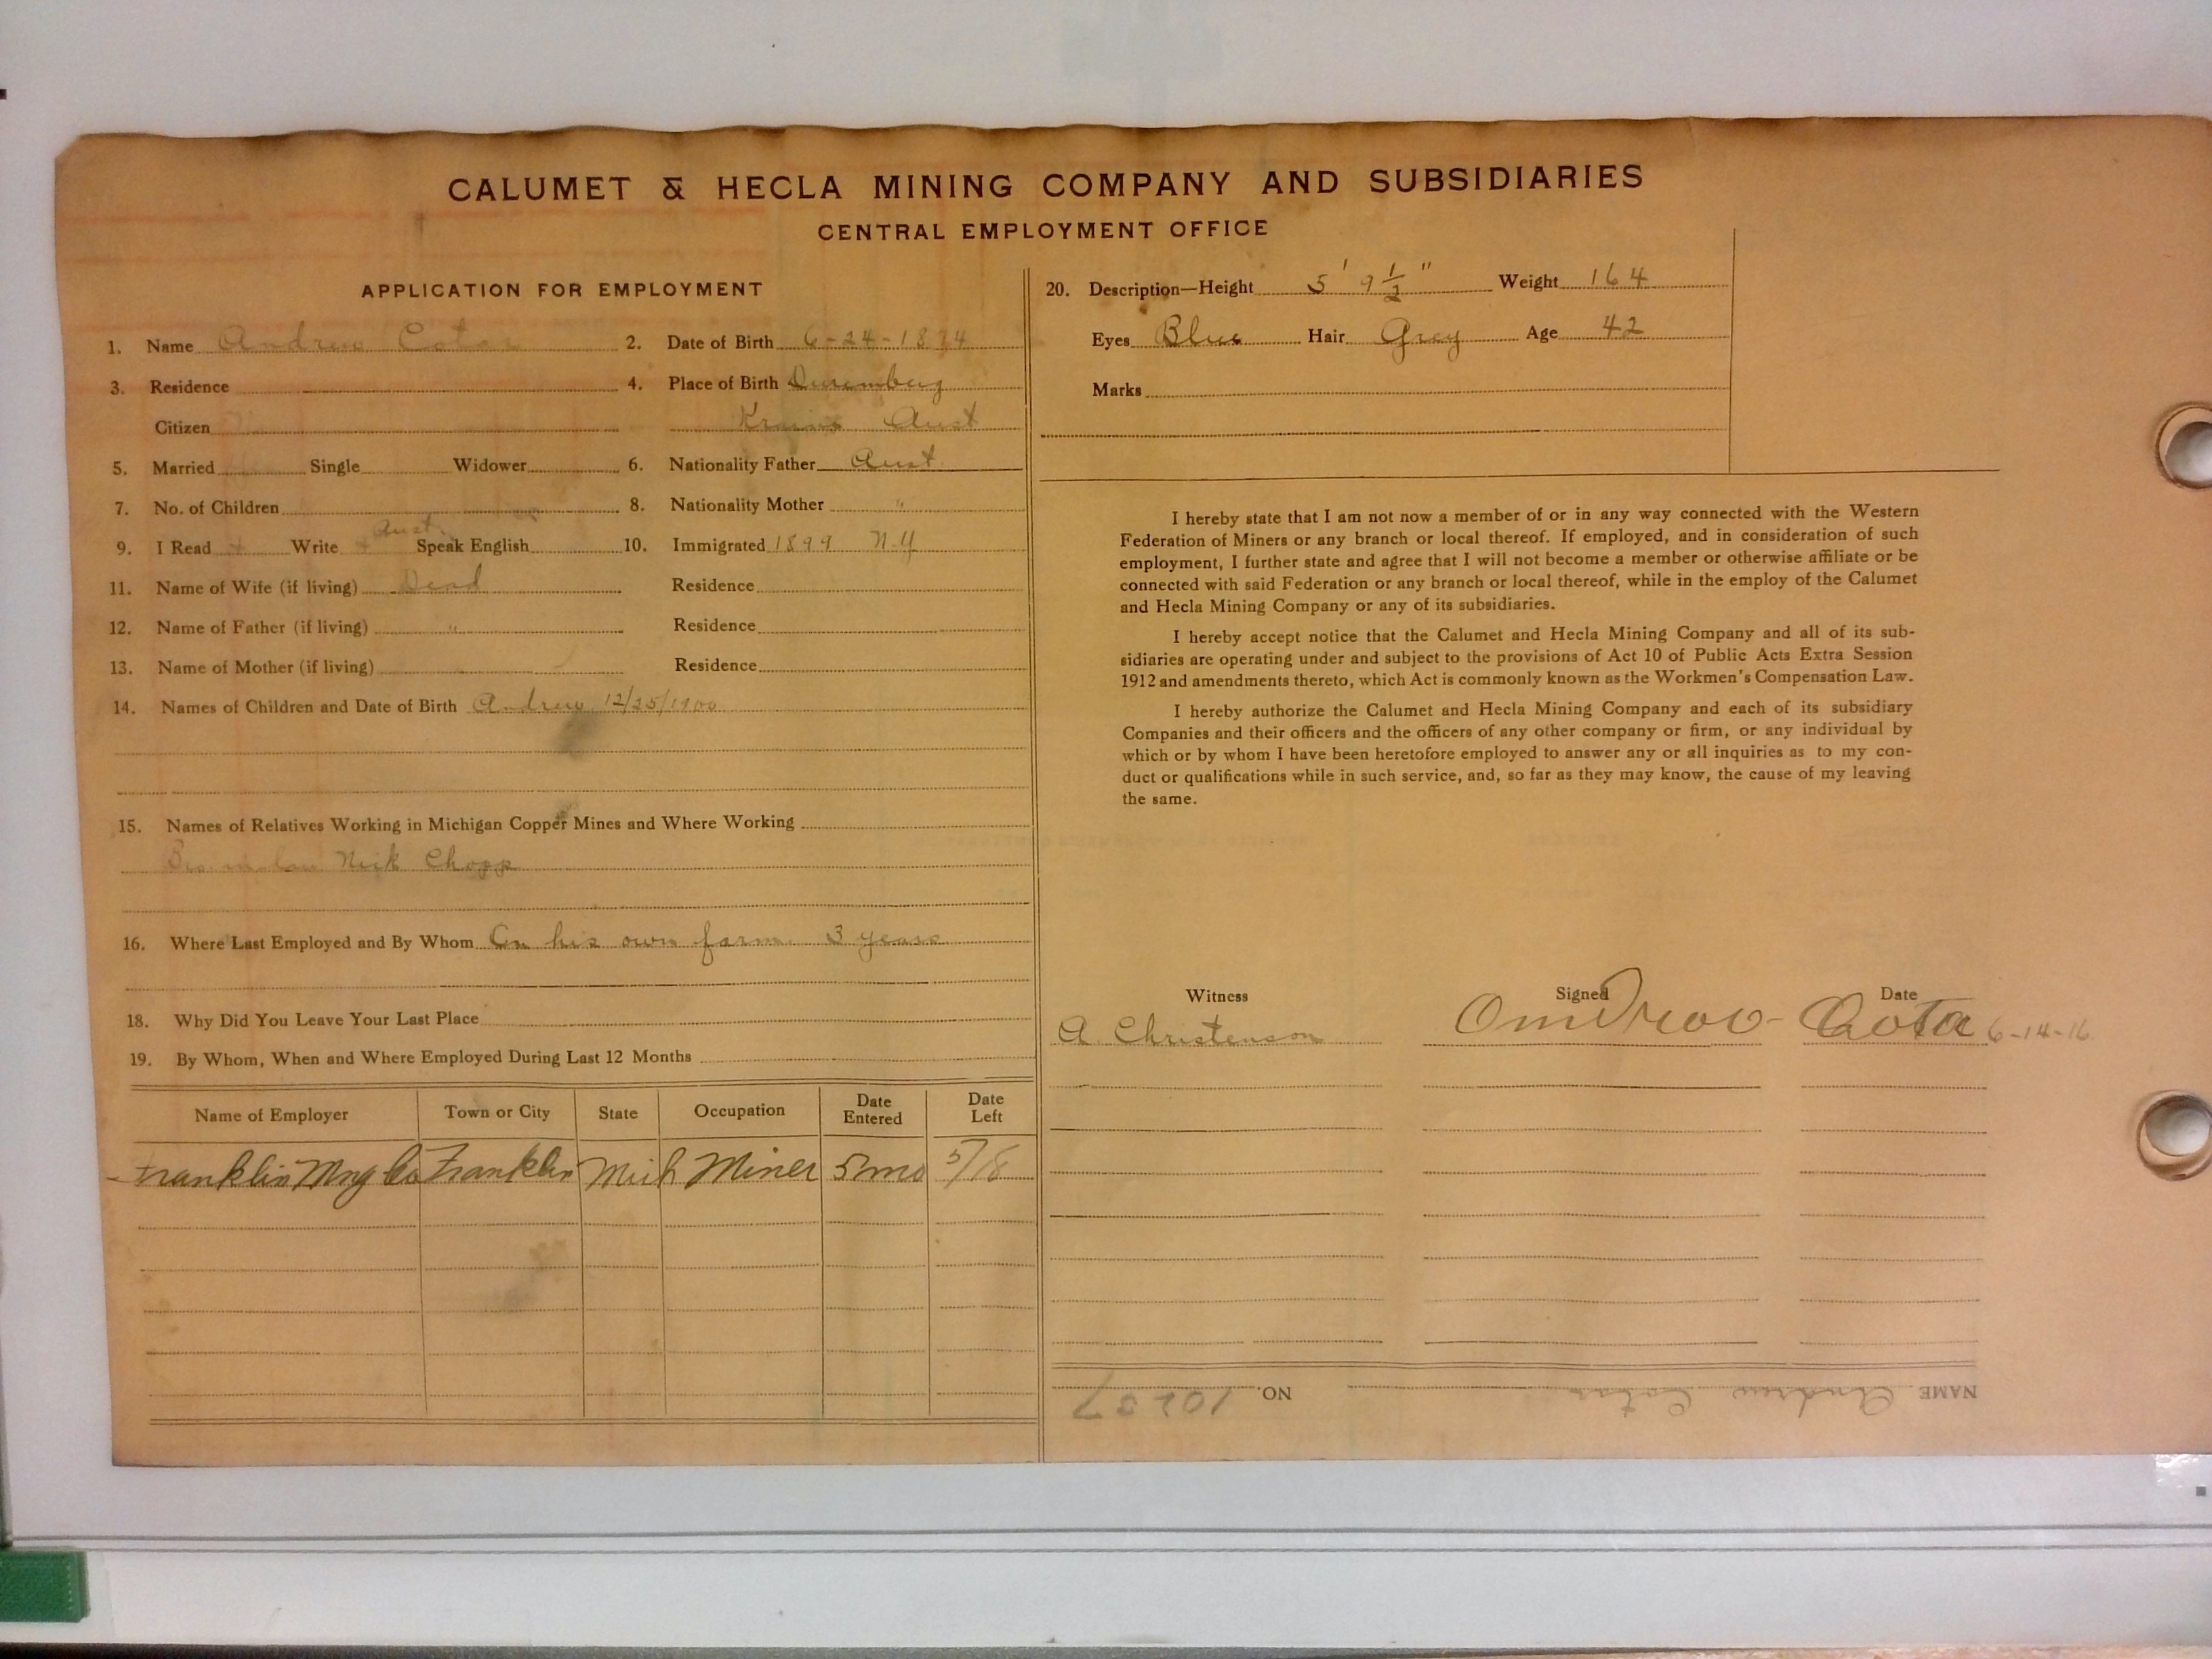 CALUMET & HECLA MINING COMPANY AND SUBSIDIARIES
CENTRAL EMPLOYMENT OFFICE
APPLICATION FOR EMPLOYMENT
1. Name Andrew Cotar 2. Date of Birth 6-24-1874
3. Residence 4. Place of Birth
Citizen Aust
5. Married Single Widower 6. Nationality Father Aust
7. No. of Children 8. Nationality Mother "
Aust
9. I Read + Write + Speak English 10. Immigrated 1899 N.Y
11. Name of Wife (if living) Dead Residence
12. Name of Father (if living) " Residence
13. Name of Mother (if living) " Residence
14. Names of Children and Date of Birth Andrew 12/25/1900
15. Names of Relatives Working in Michigan Copper Mines and Where Working
Bro in law Nick Chopp
16. Where Last Employed and By Whom On his own farm. 3 years
18. Why Did You Leave Your Last Place
19. By Whom, When and Where Employed During Last 12 Months
Name of Employer Town or City State Occupation Date Entered Date Left
Franklin Mng Co Franklin Mich Miner 5 mo 5/18
20. Description—Height 5' 9 1/2" Weight 164
Eyes Blue Hair Grey Age 42
Marks
I hereby state that I am not now a member of or in any way connected with the Western
Federation of Miners or any branch or local thereof. If employed, and in consideration of such
employment, I further state and agree that I will not become a member or otherwise affiliate or be
connected with said Federation or any branch or local thereof, while in the employ of the Calumet
and Hecla Mining Company or any of its subsidiaries.
I hereby accept notice that the Calumet and Hecla Mining Company and all of its sub-
sidiaries are operating under and subject to the provisions of Act 10 of Public Acts Extra Session
1912 and amendments thereto, which Act is commonly known as the Workmen's Compensation Law.
I hereby authorize the Calumet and Hecla Mining Company and each of its subsidiary
Companies and their officers and the officers of any other company or firm, or any individual by
which or by whom I have been heretofore employed to answer any or all inquiries as to my con-
duct or qualifications while in such service, and, so far as they may know, the cause of my leaving
the same.
Witness Signed Date
A. Christenson Cota 6-14-16
NAME Andrew Cotar NO. 10237